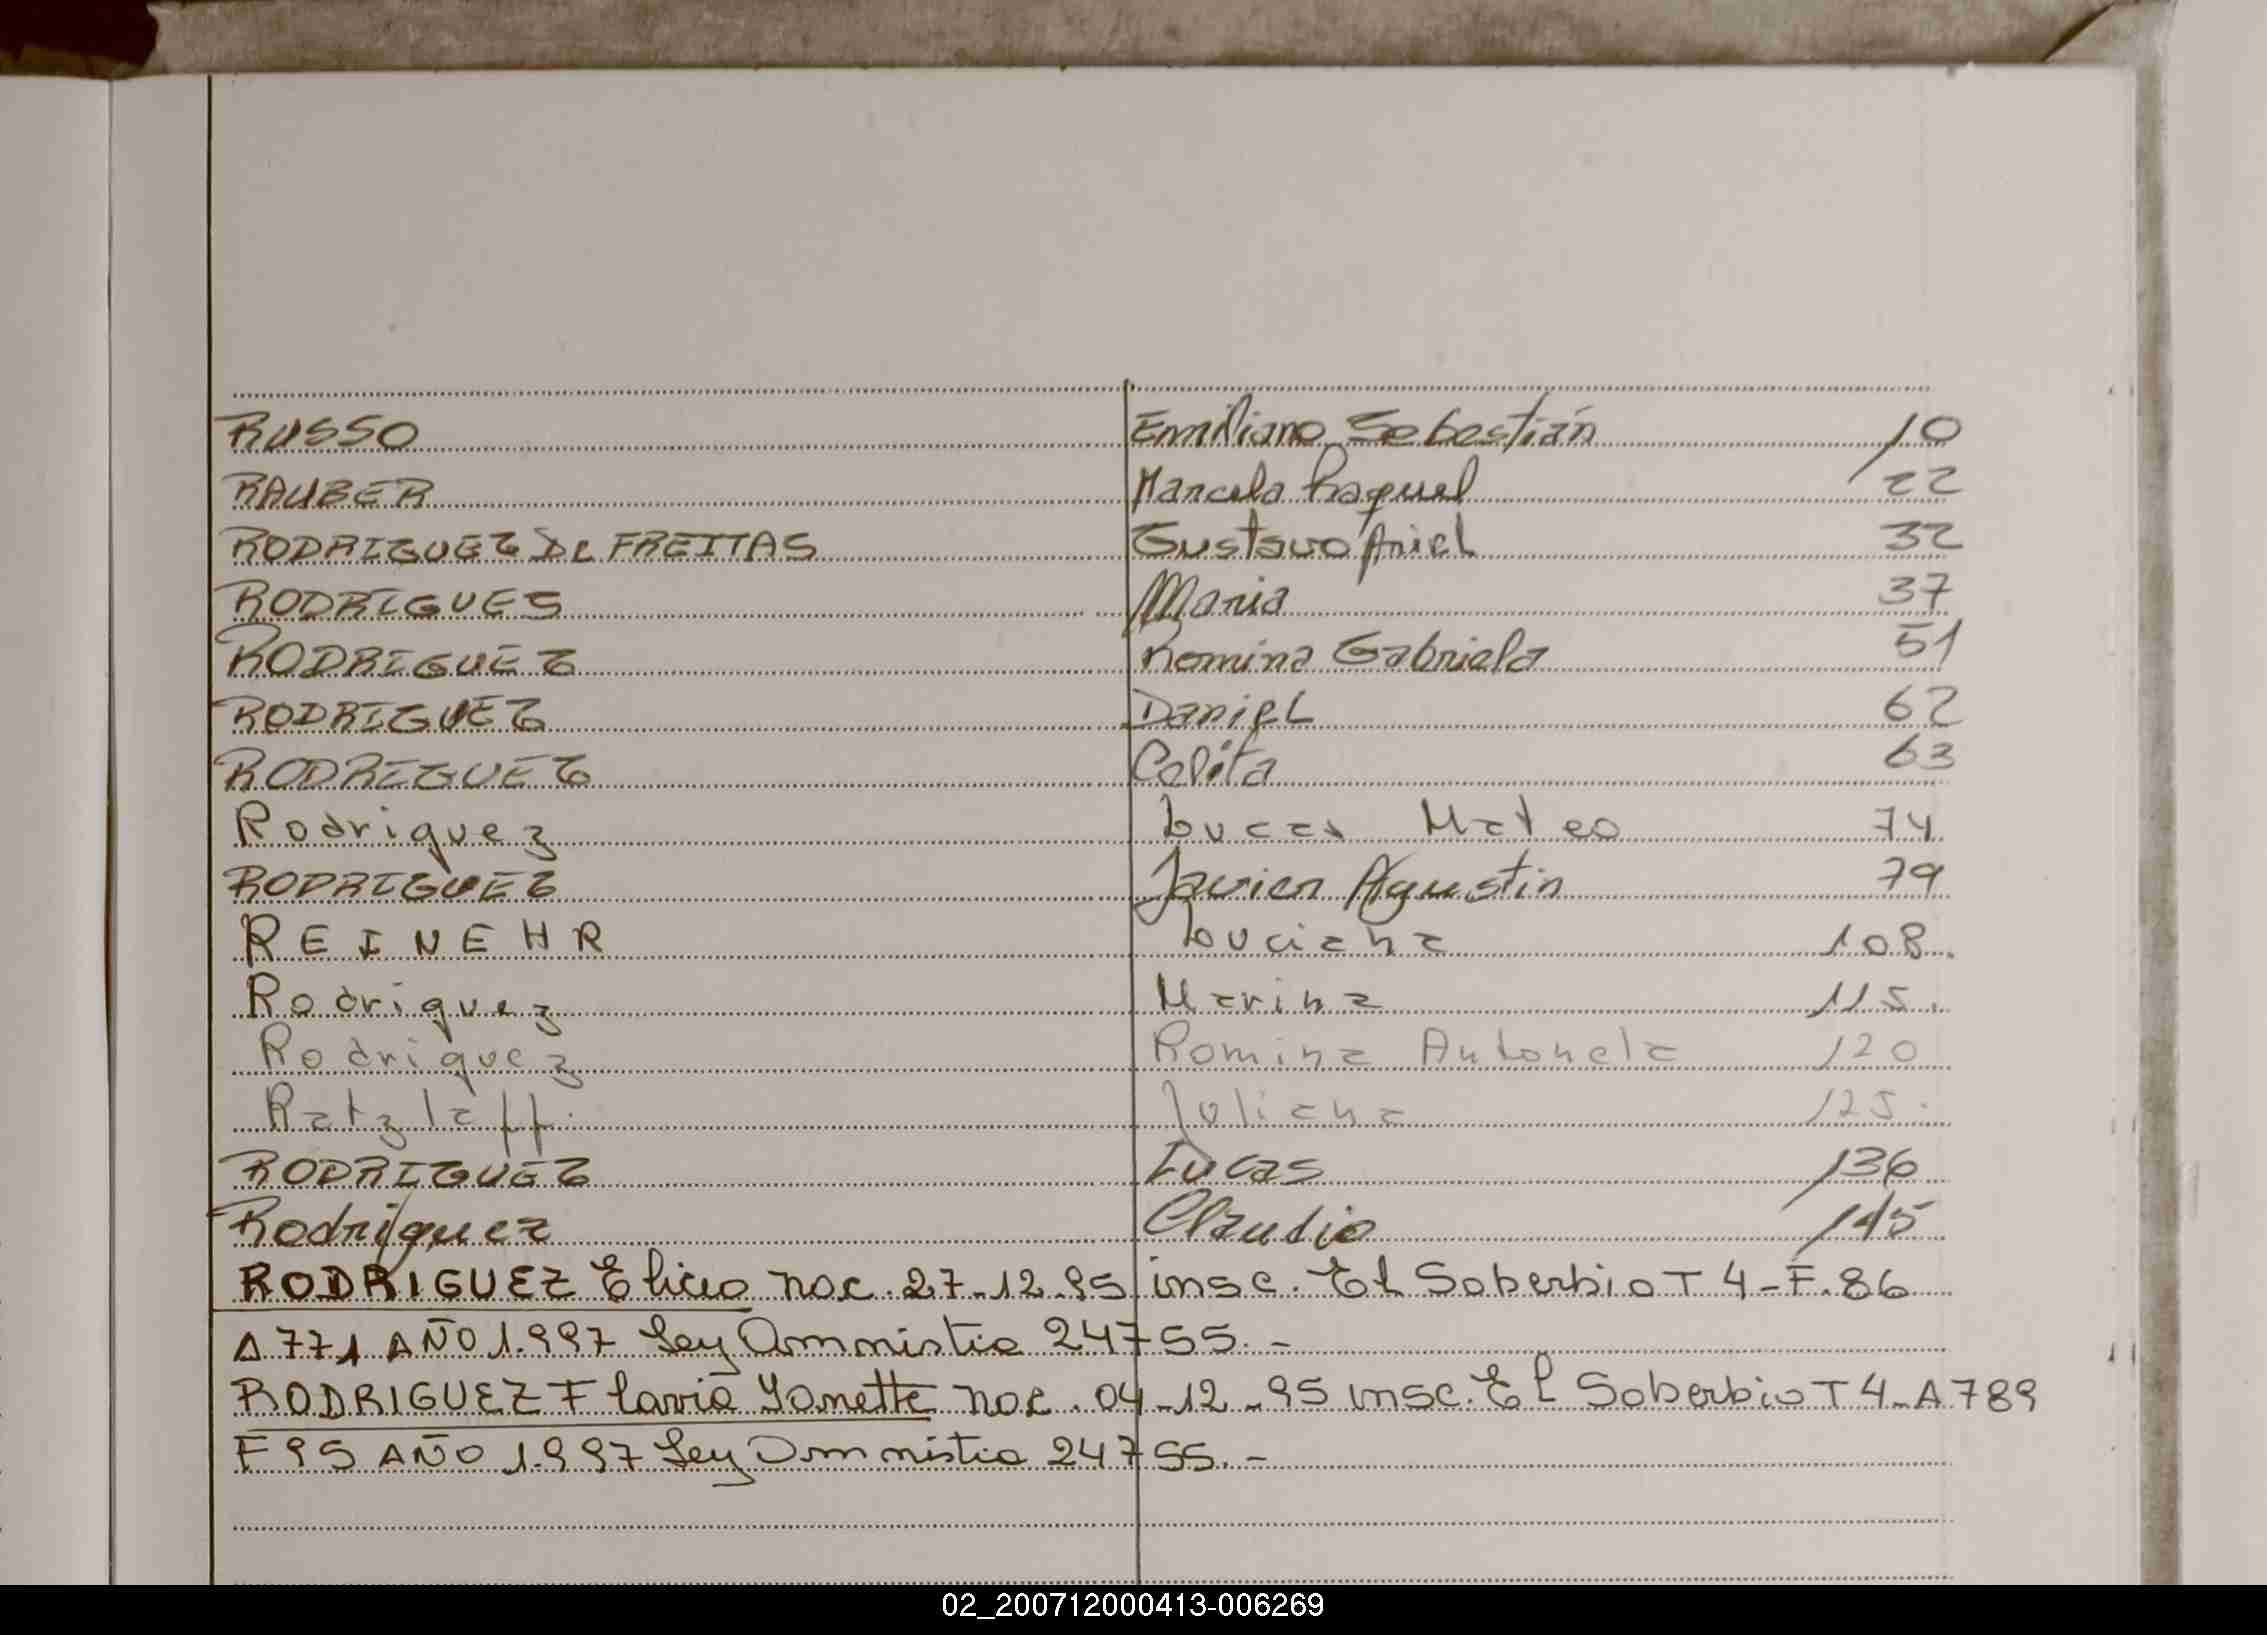 RUSSO Emiliano Sebastián 10
RAUBER Marcela Raquel 22
RODRIGUEZ De FREITAS Gustavo Ariel 32
RODRIGUES Maria 37
RODRIGUEZ Romina Gabriela 51
RODRIGUEZ Daniel 62
RODRIGUEZ Celita 63
Rodriguez Lucas Mateo 74
RODRIGUEZ Javier Agustin 79
REINEHR Luciana 108.
Rodriguez Marina 115.
Rodriguez Romina Antonela 120
Ratzlaff. Juliana 125.
RODRIGUEZ Lucas 136
Rodriguez Claudio 145
RODRIGUEZ Eliceo nac. 27-12-95 insc. El Soberbio T 4-F. 86
A 771 AÑO 1.997 Ley Amnistia 24755.-
RODRIGUEZ Flavia Yanette nac. 04-12-95 insc. El Soberbio T 4-A 789
F 95 AÑO 1.997 Ley Amnistia 24755.-
02_200712000413-006269